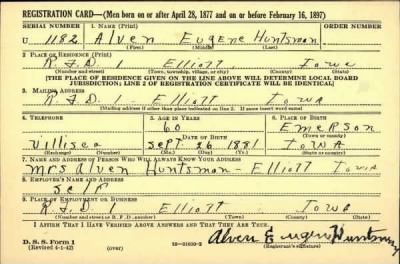 REGISTRATION CARD—(Men born on or after April 28, 1877 and on or before February 16, 1897)
SERIAL NUMBER 1. NAME (Print) ORDER NUMBER
U 1182 Alven Eugene Huntsman
(First) (Middle) (Last)
2. PLACE OF RESIDENCE (Print)
R.F.D. 1 Elliott Iowa
(Number and street) (Town, township, village, or city) (County) (State)
[THE PLACE OF RESIDENCE GIVEN ON THE LINE ABOVE WILL DETERMINE LOCAL BOARD
JURISDICTION; LINE 2 OF REGISTRATION CERTIFICATE WILL BE IDENTICAL]
3. MAILING ADDRESS
R.F.D. 1 - Elliott Iowa
[Mailing address if other than place indicated on line 2. If same insert word same]
4. TELEPHONE 5. AGE IN YEARS 6. PLACE OF BIRTH
60 Emerson
DATE OF BIRTH (Town or county)
Villisca Sept. 26 1881 Iowa
(Exchange) (Number) (Mo.) (Day) (Yr.) (State or country)
7. NAME AND ADDRESS OF PERSON WHO WILL ALWAYS KNOW YOUR ADDRESS
Mrs Alven Huntsman - Elliott Iowa
8. EMPLOYER'S NAME AND ADDRESS
Self
9. PLACE OF EMPLOYMENT OR BUSINESS
R.F.D. 1 Elliott Iowa
(Number and street or R. F. D. number) (Town) (County) (State)
I AFFIRM THAT I HAVE VERIFIED ABOVE ANSWERS AND THAT THEY ARE TRUE.
D. S. S. Form 1
(Revised 4-1-42) (over) 16—21630-2 Alven Eugene Huntsman
(Registrant's signature)